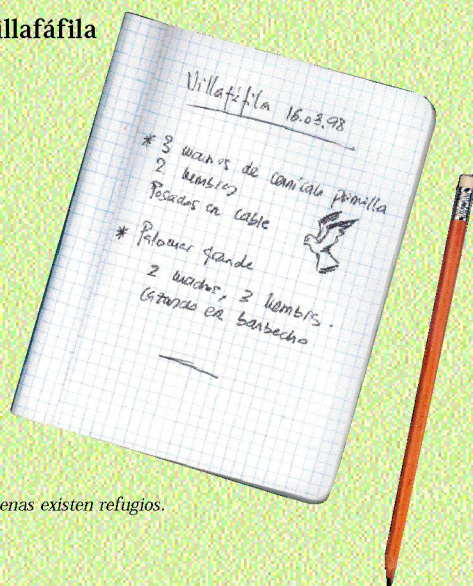 illafáfila
Villafáfila 16.03.98
* 3 machos de cernícalo primilla
2 hembras
Posados en cable
* Palomar grande
2 machos, 3 hembras.
Cazando en barbecho
enas existen refugios.